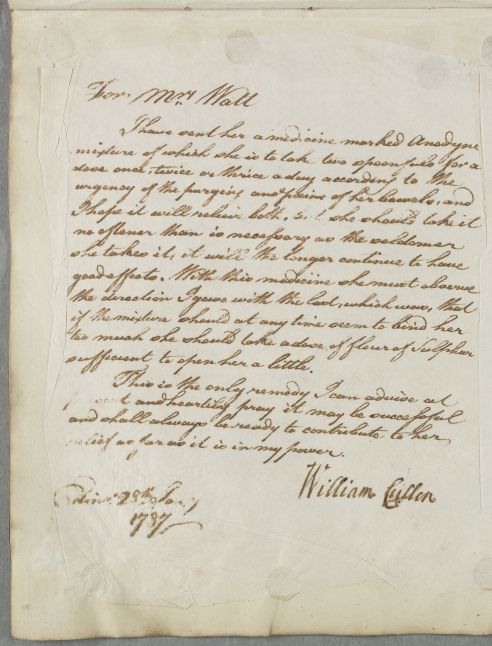 For Mrs Wall
I have sent her a medicine marked Anodyne
mixture of which she is to take two spoonfuls for a
dose once, twice or thrice a day according to the
urgency of the purging and pains of her bowels, and
I hope it will relieve both, but she should take it
no oftener than is necessary as the seldomer
she takes it, it will the longer continue to have
good effects. With this medicine she must observe
the direction I gave with the last, which was, that
if the mixture should at any time seem to bind her
too much she should take a dose of flour of Sulphur
sufficient to open her a little.
This is the only remedy I can advise at
present and heartily pray it may be successful
and shall always be ready to contribute to her
relief as far as it is in my power.
William Cullen
Edinr. 28th Jany
1787